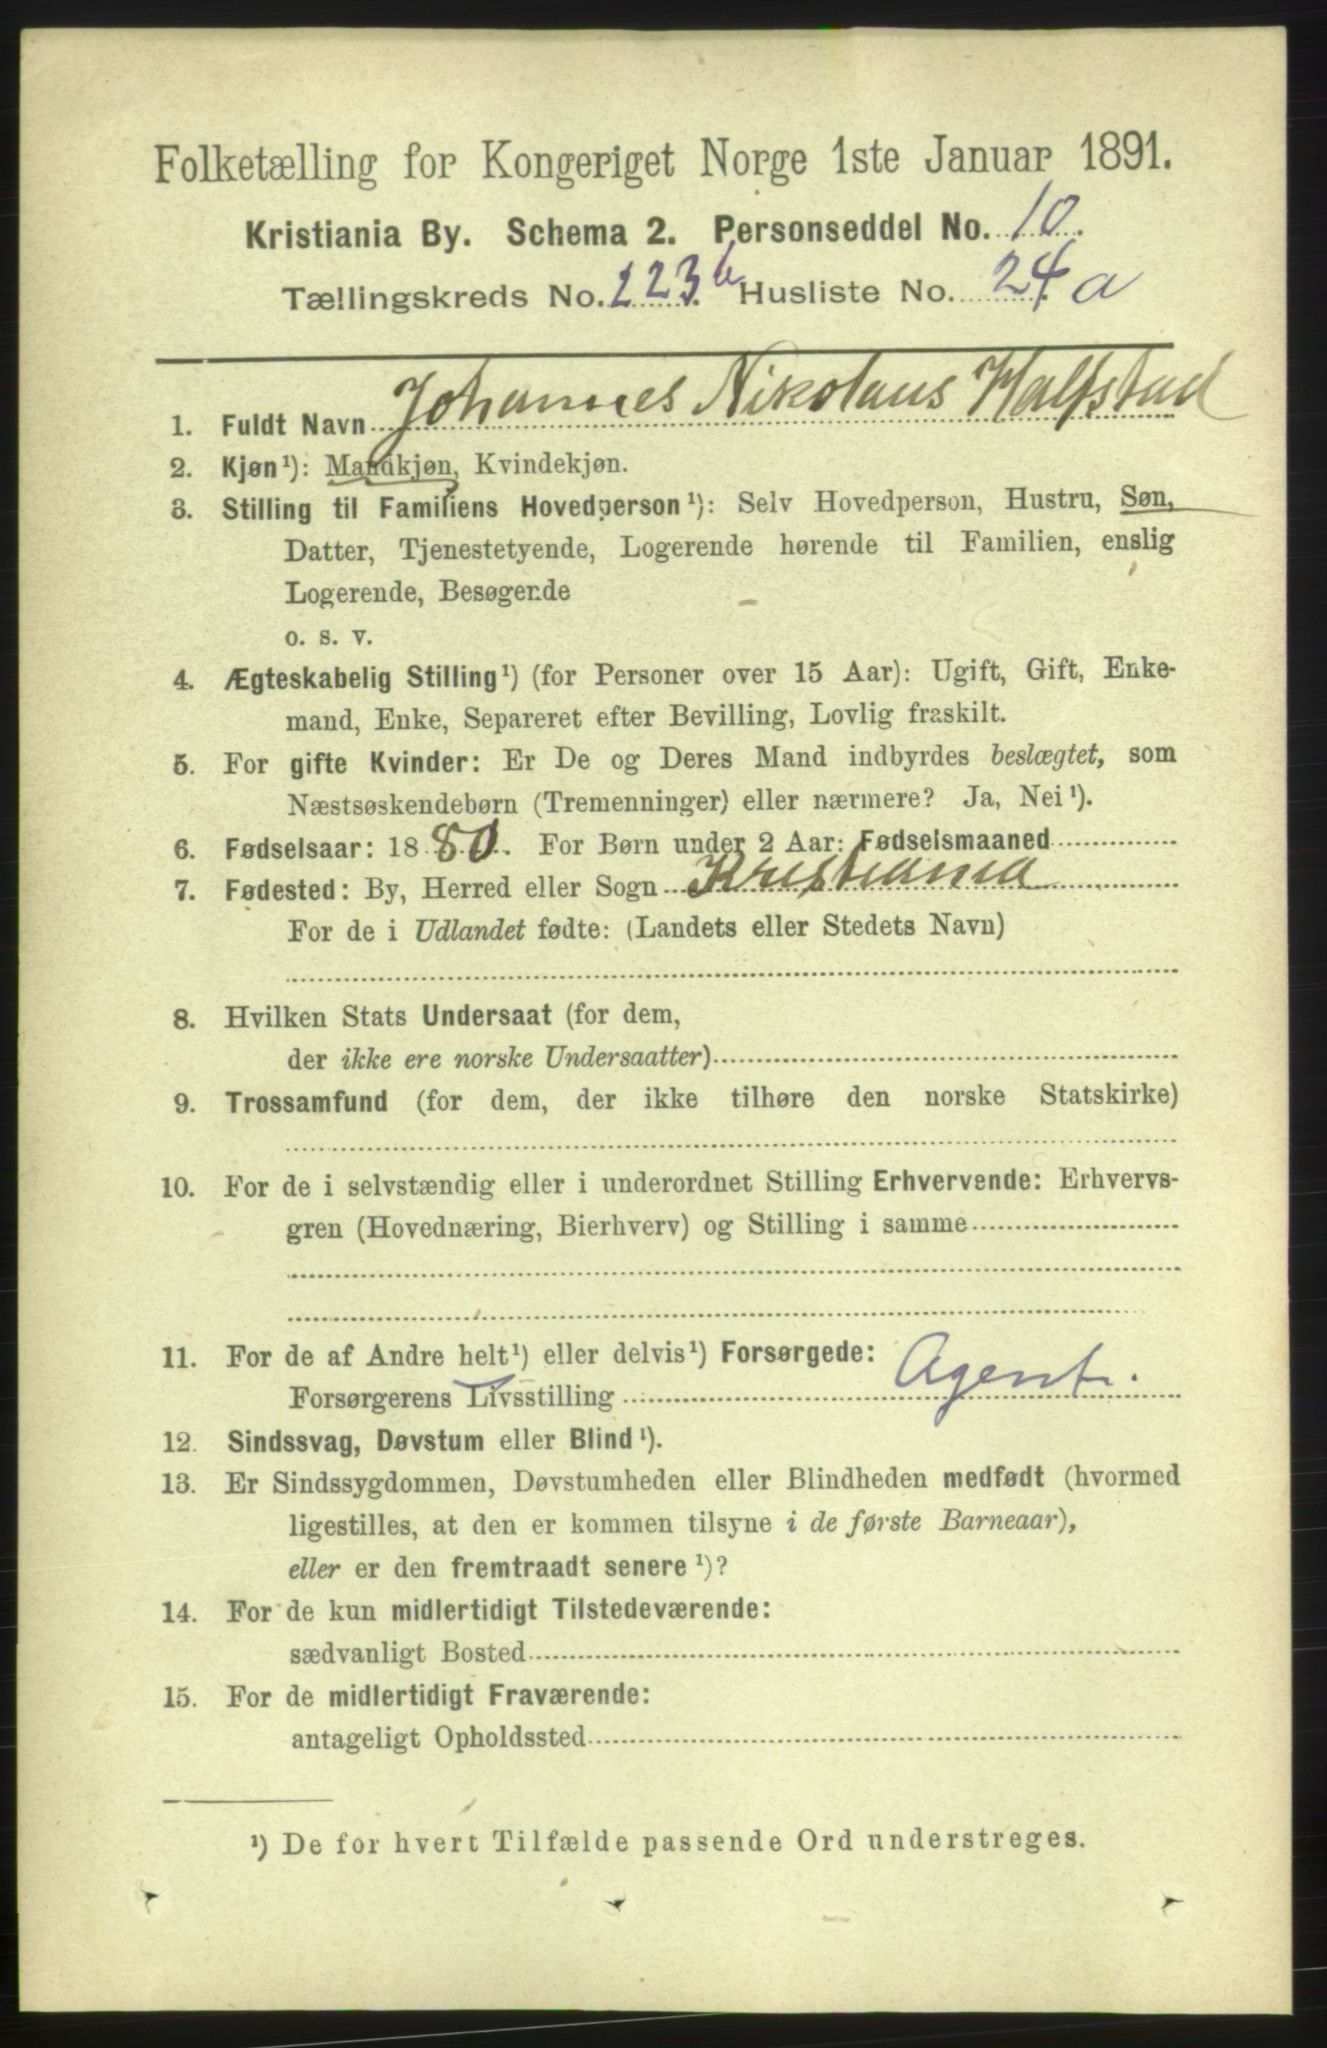 Folketælling for Kongeriget Norge 1ste Januar 1891.
Kristiania By. Schema 2. Personseddel No. 10.
Tællingskreds No. 223 b Husliste No. 24 a
1. Fuldt Navn Johannes Nikolaus Halfstad
2. Kjøn¹): Mandkjøn, Kvindekjøn.
3. Stilling til Familiens Hovedperson¹): Selv Hovedperson, Hustru, Søn,
Datter, Tjenestetyende, Logerende hørende til Familien, enslig
Logerende, Besøgende
o. s. v.
4. Ægteskabelig Stilling¹) (for Personer over 15 Aar): Ugift, Gift, Enke-
mand, Enke, Separeret efter Bevilling, Lovlig fraskilt.
5. For gifte Kvinder: Er De og Deres Mand indbyrdes beslægtet, som
Næstsøskendebørn (Tremenninger) eller nærmere? Ja, Nei¹).
6. Fødselsaar: 1880. For Børn under 2 Aar: Fødselsmaaned
7. Fødested: By, Herred eller Sogn Kristiania
For de i Udlandet fødte: (Landets eller Stedets Navn)
8. Hvilken Stats Undersaat (for dem,
der ikke ere norske Undersaatter)
9. Trossamfund (for dem, der ikke tilhøre den norske Statskirke)
10. For de i selvstændig eller i underordnet Stilling Erhvervende: Erhvervs-
gren (Hovednæring, Bierhverv) og Stilling i samme
11. For de af Andre helt¹) eller delvis¹) Forsørgede:
Forsørgerens Livsstilling Agent.
12. Sindssvag, Døvstum eller Blind¹).
13. Er Sindssygdommen, Døvstumheden eller Blindheden medfødt (hvormed
ligestilles, at den er kommen tilsyne i de første Barneaar),
eller er den fremtraadt senere¹)?
14. For de kun midlertidigt Tilstedeværende:
sædvanligt Bosted
15. For de midlertidigt Fraværende:
antageligt Opholdssted
¹) De for hvert Tilfælde passende Ord understreges.